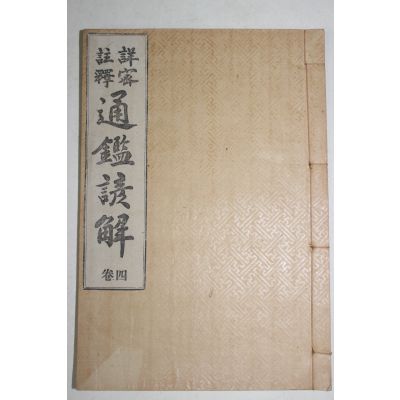 詳密註釋
通鑑諺解
卷四